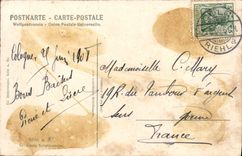 POSTKARTE - CARTE-POSTALE
Weltpostverein - Union Postale Universelle
RIEHL
Cologne 21 Juin 1908
Bons Baisers
Pierre et
Mademoiselle C. Mary
19, Rue du Tambour d'argent
Sens
Yonne
France